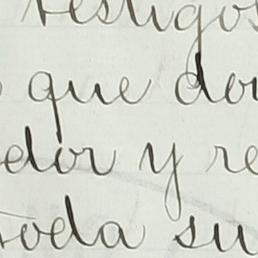 testigos
que do
dor y re
toda su